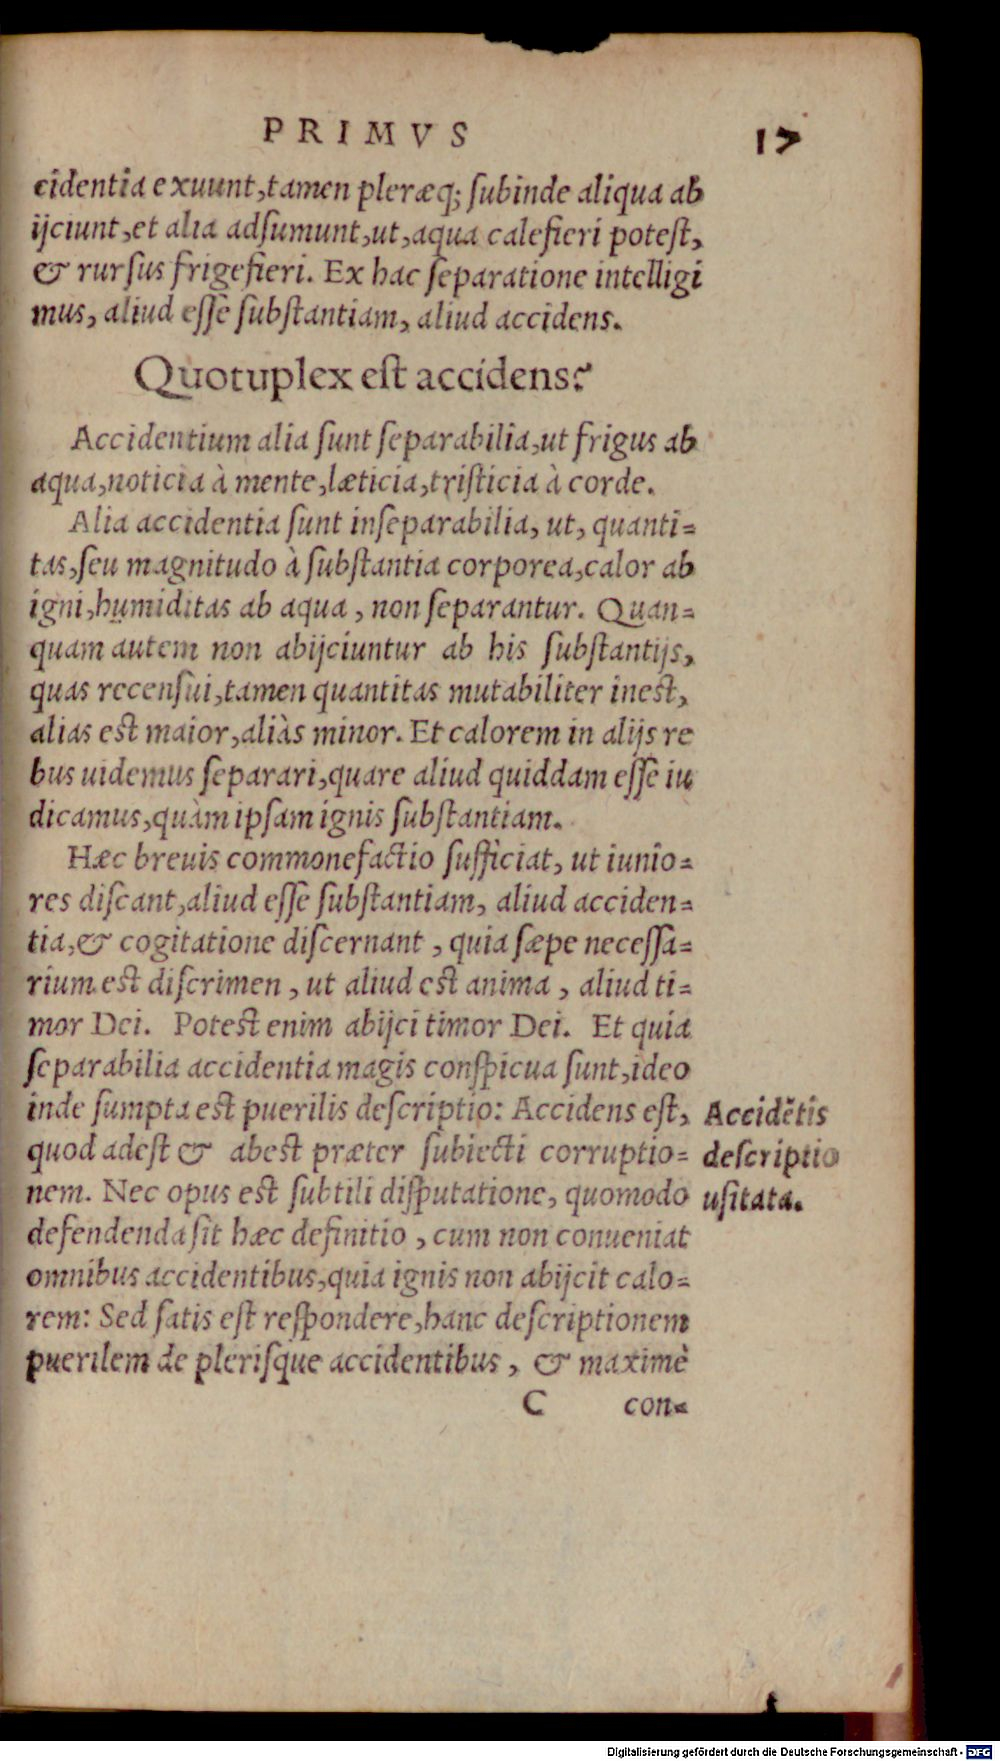 PRIMVS 17
cidentia exuunt, tamen pleræq; ſubinde aliqua ab
ijciunt, et alia adſumunt, ut, aqua calefieri poteſt,
& rurſus frigefieri. Ex hac ſeparatione intelligi
mus, aliud eſſe ſubſtantiam, aliud accidens.
Quotuplex eſt accidens?
Accidentium alia ſunt ſeparabilia, ut frigus ab
aqua, noticia à mente, læticia, triſticia à corde.
Alia accidentia ſunt inſeparabilia, ut, quanti-
tas, ſeu magnitudo à ſubſtantia corporea, calor ab
igni, humiditas ab aqua, non ſeparantur. Quan-
quam autem non abijciuntur ab his ſubſtantijs,
quas recenſui, tamen quantitas mutabiliter ineſt,
alias eſt maior, aliàs minor. Et calorem in alijs re
bus uidemus ſeparari, quare aliud quiddam eſſe iu
dicamus, quàm ipſam ignis ſubſtantiam.
Hæc breuis commonefactio ſufficiat, ut iunio-
res diſcant, aliud eſſe ſubſtantiam, aliud acciden-
tia, & cogitatione diſcernant, quia ſæpe neceſſa-
rium eſt diſcrimen, ut aliud eſt anima, aliud ti-
mor Dei. Poteſt enim abijci timor Dei. Et quia
ſeparabilia accidentia magis conſpicua ſunt, ideo
inde ſumpta eſt puerilis deſcriptio: Accidens eſt,
quod adeſt & abeſt præter ſubiecti corruptio-
nem. Nec opus eſt ſubtili diſputatione, quomodo
defendenda ſit hæc definitio, cum non conueniat
omnibus accidentibus, quia ignis non abijcit calo-
rem: Sed ſatis eſt reſpondere, hanc deſcriptionem
puerilem de pleriſque accidentibus, & maximè
C con-
Accidẽtis
deſcriptio
uſitata.
Digitalisierung gefördert durch die Deutsche Forschungsgemeinschaft - DFG